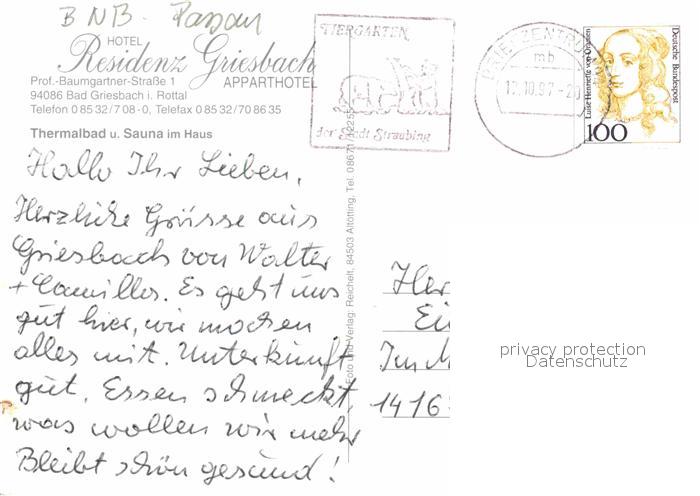 BNB - Passau
HOTEL
Residenz Griesbach
APPARTHOTEL
Prof.-Baumgartner-Straße 1
94086 Bad Griesbach i. Rottal
Telefon 0 85 32/7 08-0, Telefax 0 85 32/70 86 35
Thermalbad u. Sauna im Haus
Hallo Ihr Lieben,
Herzliche Grüsse aus
Griesbach von Walter
+ Camillo. Es geht uns
gut hier, wir machen
alles mit. Unterkunft
gut, Essen schmeckt,
was wollen wir mehr
Bleibt schön gesund!
Foto und Verlag: Reichelt, 84503 Altötting, Tel. 08671/12255
TIERGARTEN
der Stadt Straubing
BRIEFZENTRUM
mb
12.10.97-20
Deutsche Bundespost
Luise Henriette von Oranien
100
Her
Ei
Im M
1416
privacy protection
Datenschutz